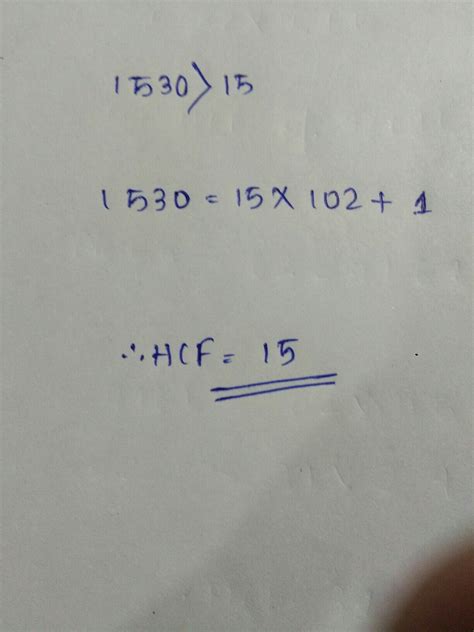 1530>15
1530 = 15 × 102 + 1
∴ HCF = 15